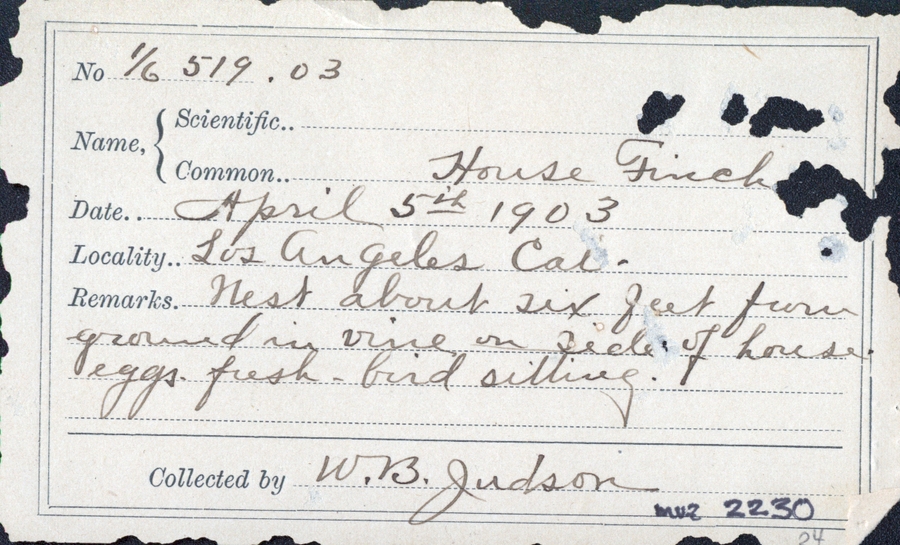 No 1/6 519.03
Name, { Scientific..
Common.. House Finch
Date.. April 5th 1903
Locality.. Los Angeles Cal.
Remarks. Nest about six feet from
ground in vine on side of house.
eggs fresh - bird sitting.
Collected by W. B. Judson
mvz 2230
24